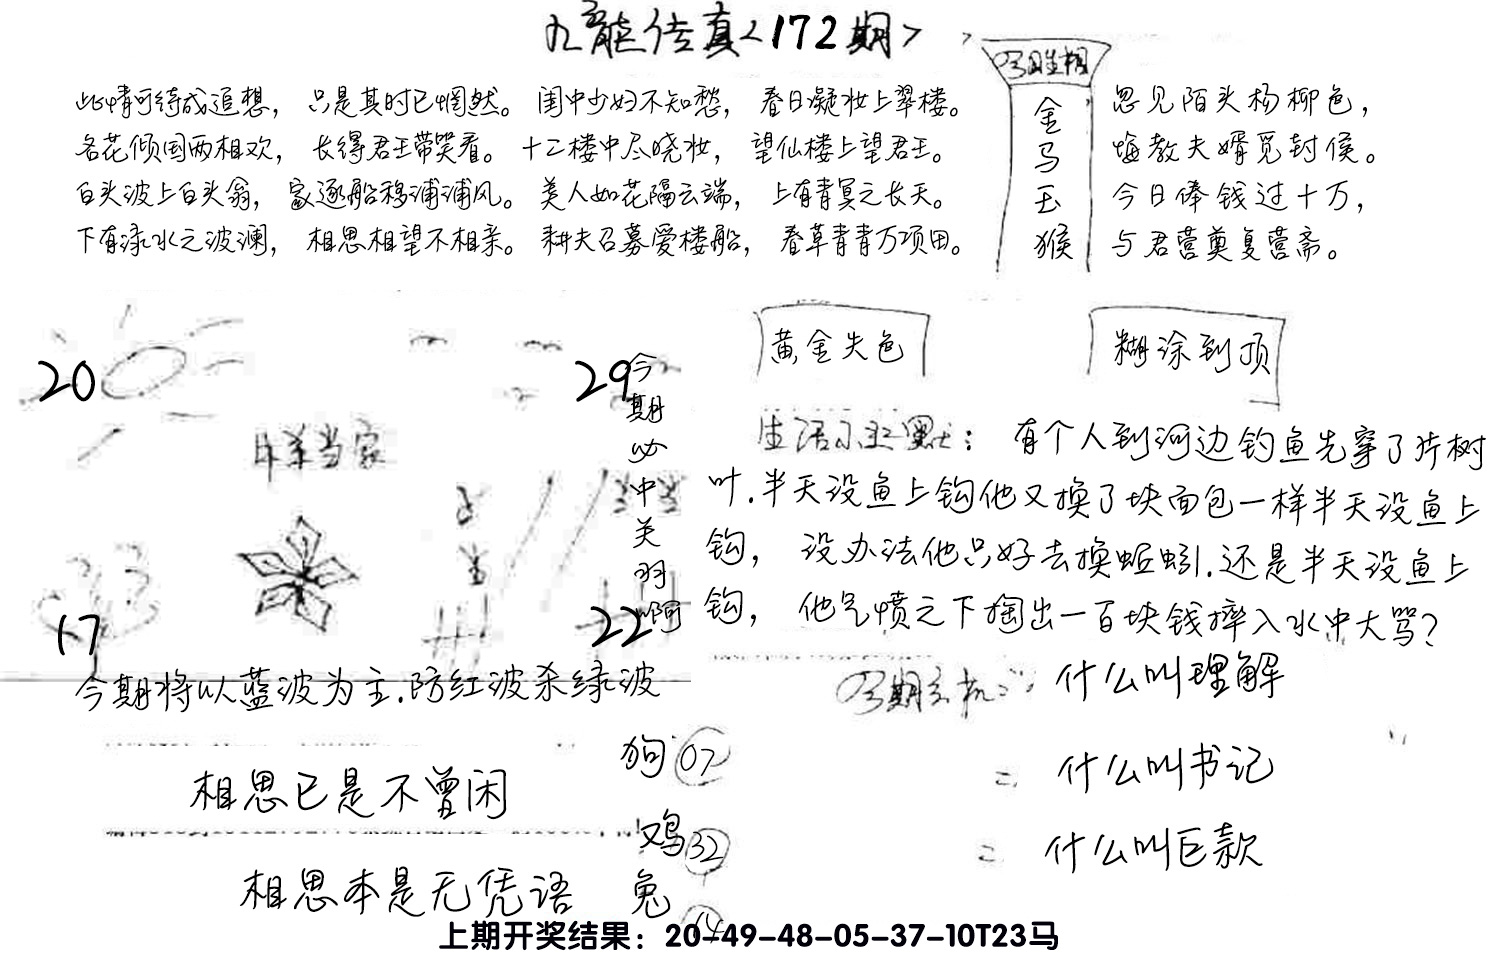 九龍传真<172期>
此情可待成追想，只是其时已惘然。闺中少妇不知愁，春日凝妆上翠楼。
名花倾国两相欢，长得君王带笑看。十二楼中尽晓妆，望仙楼上望君王。
白头波上白头翁，家逐船移浦浦风。美人如花隔云端，上有青冥之长天。
下有渌水之波澜，相思相望不相亲。耕夫召募爱楼船，春草青青万项田。
金
马
玉
猴
忽见陌头杨柳色，
悔教夫婿觅封侯。
今日俸钱过十万，
与君营奠复营斋。
20
29
17
22
今
期
必
中
关
羽
啊
今期将以蓝波为主.防红波杀绿波
黄金失色
糊涂到顶
生活幽默：有个人到河边钓鱼先穿了片树
叶.半天没鱼上钩他又换了块面包一样半天没鱼上
钩，没办法他只好去换蚯蚓.还是半天没鱼上
钩，他气愤之下掏出一百块钱摔入水中大骂？
什么叫理解
二 什么叫书记
二 什么叫巨款
相思已是不曾闲
相思本是无凭语
狗 07
鸡 32
兔
上期开奖结果：20-49-48-05-37-10T23马